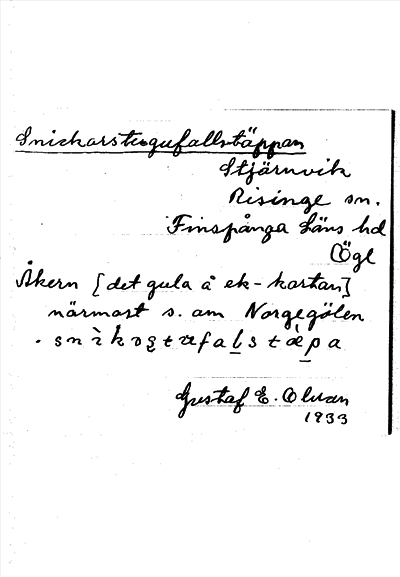 Snickarstugufallstäppan
Stjärnvik
Risinge sn.
Finspånga läns hd
Ögl
Åkern [det gula å ek-kartan]
närmast s. om Norgegölen
Gustaf E. Olvan
1933